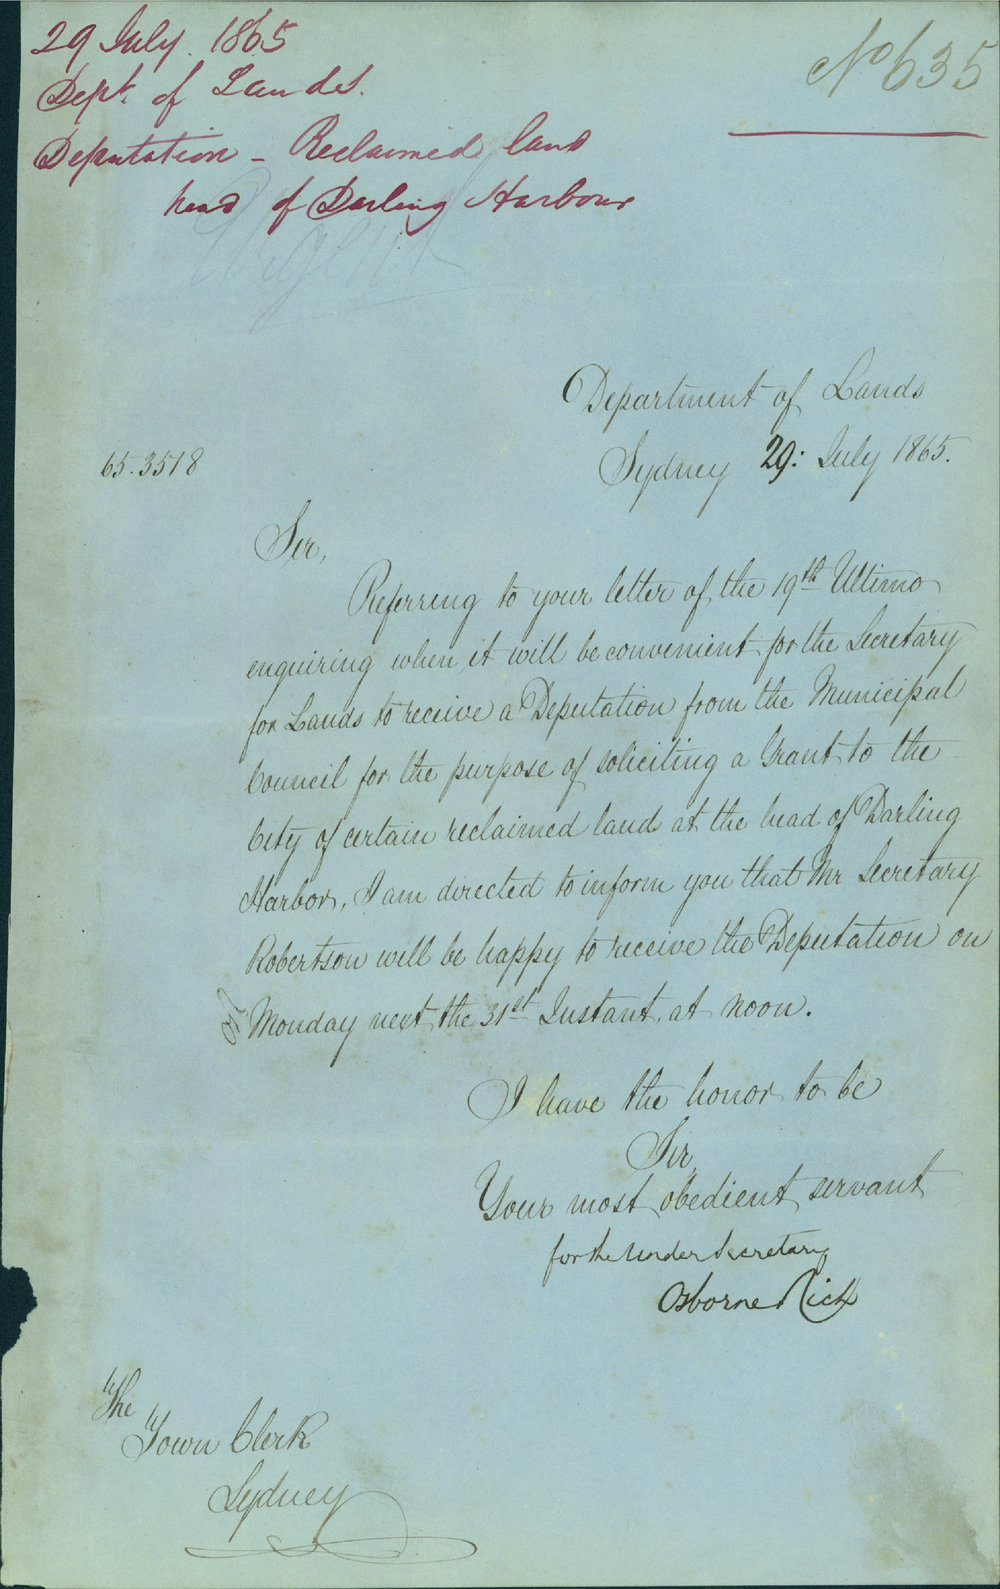 29 July. 1865
Dept. of Lands.
Deputation - Reclaimed land
head of Darling Harbour
No 635
Urgent
Department of Lands
Sydney 29: July 1865.
65.3518
Sir,
Referring to your letter of the 19th Ultimo
enquiring when it will be convenient for the Secretary
for Lands to receive a Deputation from the Municipal
Council for the purpose of soliciting a Grant to the
City of certain reclaimed land at the head of Darling
Harbor, I am directed to inform you that Mr Secretary
Robertson will be happy to receive the Deputation on
Monday next the 31st Instant, at noon.
I have the honor to be
Sir,
Your most obedient servant
for the Under Secretary
Osborne Rich
The
Town Clerk
Sydney